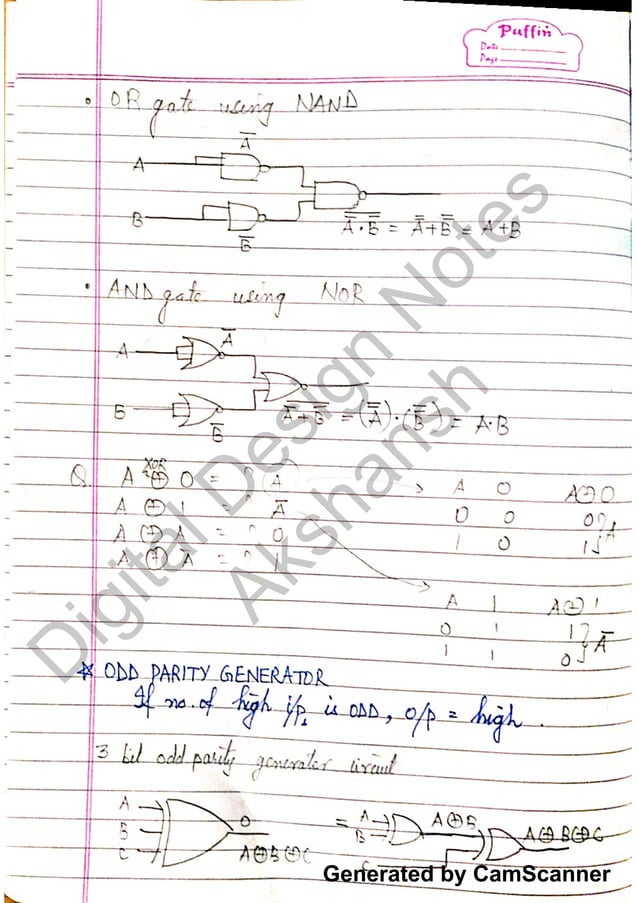 Puffin
Date
Page
• OR gate using NAND
A̅
A
B
B̅
\overline{A̅ · B̅} = \overline{A̅} + \overline{B̅} = A + B
• AND gate using NOR
A̅
A
B
B̅
\overline{A̅ + B̅} = (\overline{A̅}) · (\overline{B̅}) = A·B
XOR
Q. A ⊕ 0 = ? A
A ⊕ 1 = ? A̅
A ⊕ A = ? 0
A ⊕ A̅ = ? 1
A 0 A⊕0
0 0 0
1 0 1 } A
A 1 A⊕1
0 1 1
1 1 0 } A̅
☆ ODD PARITY GENERATOR
If no. of high i/ps is ODD, o/p = high.
3 bit odd parity generator circuit
A
B
C
O
A⊕B⊕C
=
A
B
A⊕B
C
A⊕B⊕C
Digital Design Notes
Akshansh
Generated by CamScanner